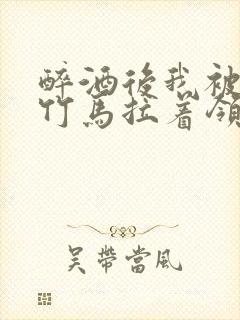 醉酒後我被
竹馬拉着領
吳帶當風